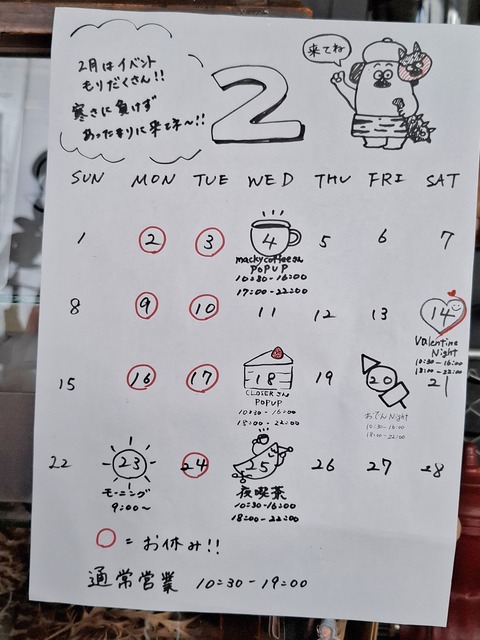 2月はイベント
もりだくさん!!
寒さに負けず
あったまりに来てネ〜!!
2
来てね
SUN MON TUE WED THU FRI SAT
1 2 3 4 5 6 7
mackycoffeeさん
POPUP
10:30-16:00
17:00-22:00
8 9 10 11 12 13 14
Valentine
Night
10:30-16:00
18:00-22:00
15 16 17 18 19 20 21
CLOSERさん
POPUP
10:30-16:00
18:00-22:00
おでんNight
10:30-16:00
18:00-22:00
22 23 24 25 26 27 28
モーニング
9:00〜
夜喫茶
10:30-16:00
18:00-22:00
○=お休み!!
通常営業 10:30-19:00